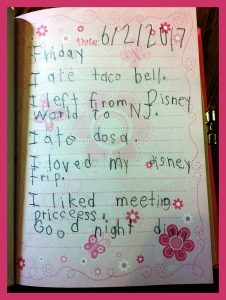 Date: 6/2/2017
Friday
I ate taco bell.
I left from Disney
World To NJ.
I ate dosa.
I loved my Disney
Trip.
I liked meeting
princcess.
Good night diary